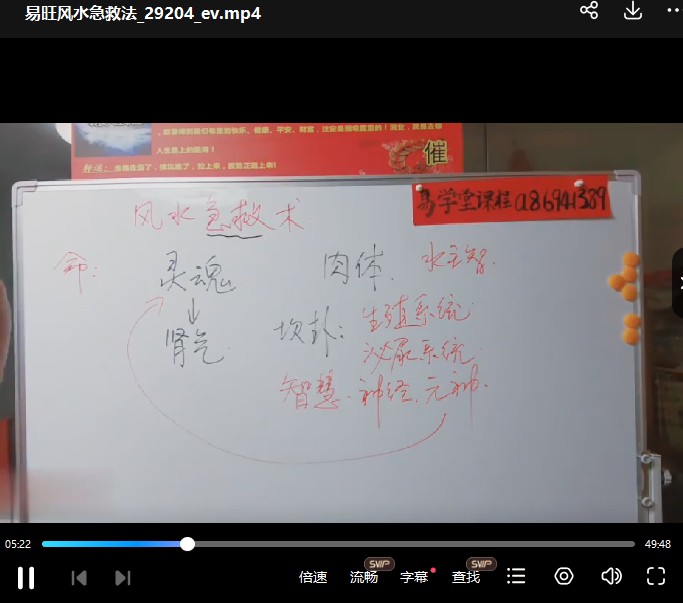 易旺风水急救法_29204_ev.mp4
人生路上的路障！
催
易学堂课程a86941389
风水急救术
命：
灵魂
肉体.
水主智.
↓
肾气
坎卦：
生殖系统
泌尿系统
智慧.神经.元神.
05:22
49:48
倍速
流畅
SVIP
字幕
查找
SVIP